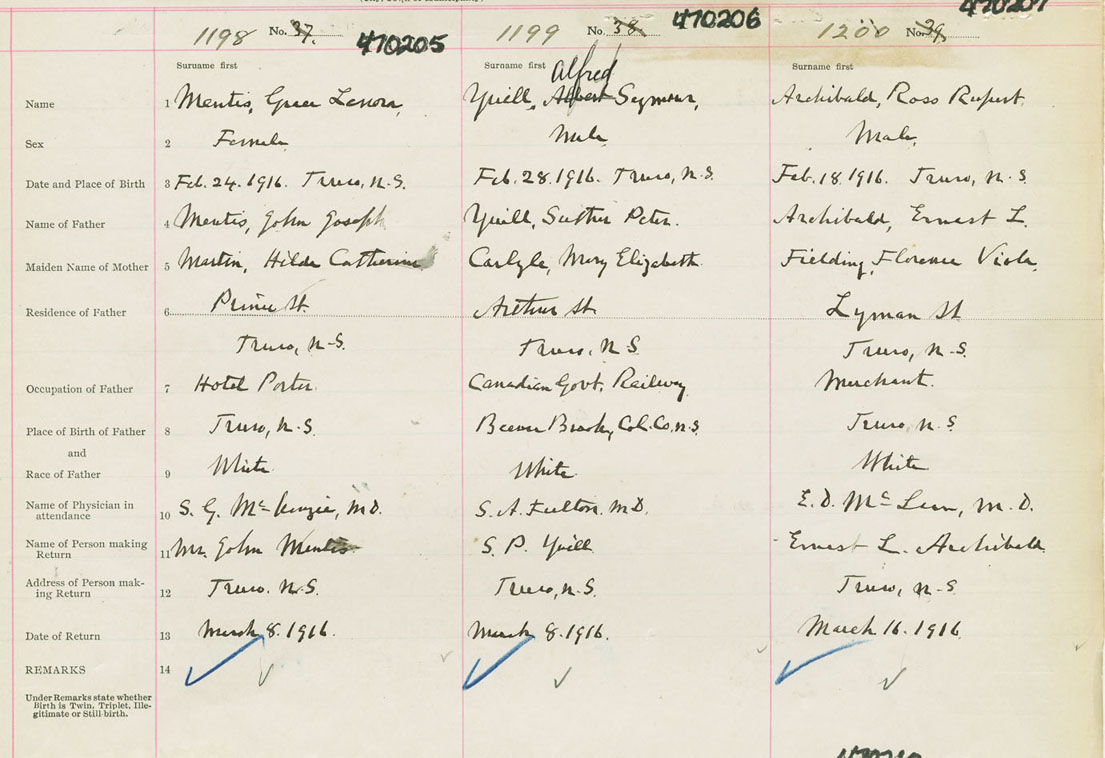 1198 No. 37. 470205 1199 No. 38. 470206 1200 No. 39. 470207
Surname first Surname first Surname first
Alfred
Name 1 Mentis, Grace Lenora, Yuill, Albert Seymour, Archibald, Ross Rupert
Sex 2 Female Male Male,
Date and Place of Birth 3 Feb. 24. 1916. Truro, N.S. Feb. 28. 1916. Truro, N.S. Feb. 18. 1916. Truro, N.S
Name of Father 4 Mentis, John Joseph Yuill, Peter. Archibald, Ernest L.
Maiden Name of Mother 5 Martin, Hilda Catherine Carlyle, Mary Elizabeth Fielding, Florence Viola,
Residence of Father 6 Prince St. Arthur St. Lyman St
Truro, N.S. Truro, N.S Truro, N.S.
Occupation of Father 7 Hotel Porter. Canadian Govt. Railway Merchant.
Place of Birth of Father 8 Truro, N.S. Beaver Brook, Col. Co, N.S Truro, N.S
and
Race of Father 9 White White White
Name of Physician in
attendance 10 S. G. McKenzie, M.D. S. A. Fulton. M.D. E. D. McLean, M.D.
Name of Person making
Return 11 Mr. John Mentis S. P. Yuill Ernest L. Archibald
Address of Person mak-
ing Return 12 Truro. N.S. Truro, N.S. Truro, N.S
Date of Return 13 March 8. 1916. March 8. 1916. March 16. 1916.
REMARKS 14
Under Remarks state whether
Birth is Twin, Triplet, Ille-
gitimate or Still-birth.